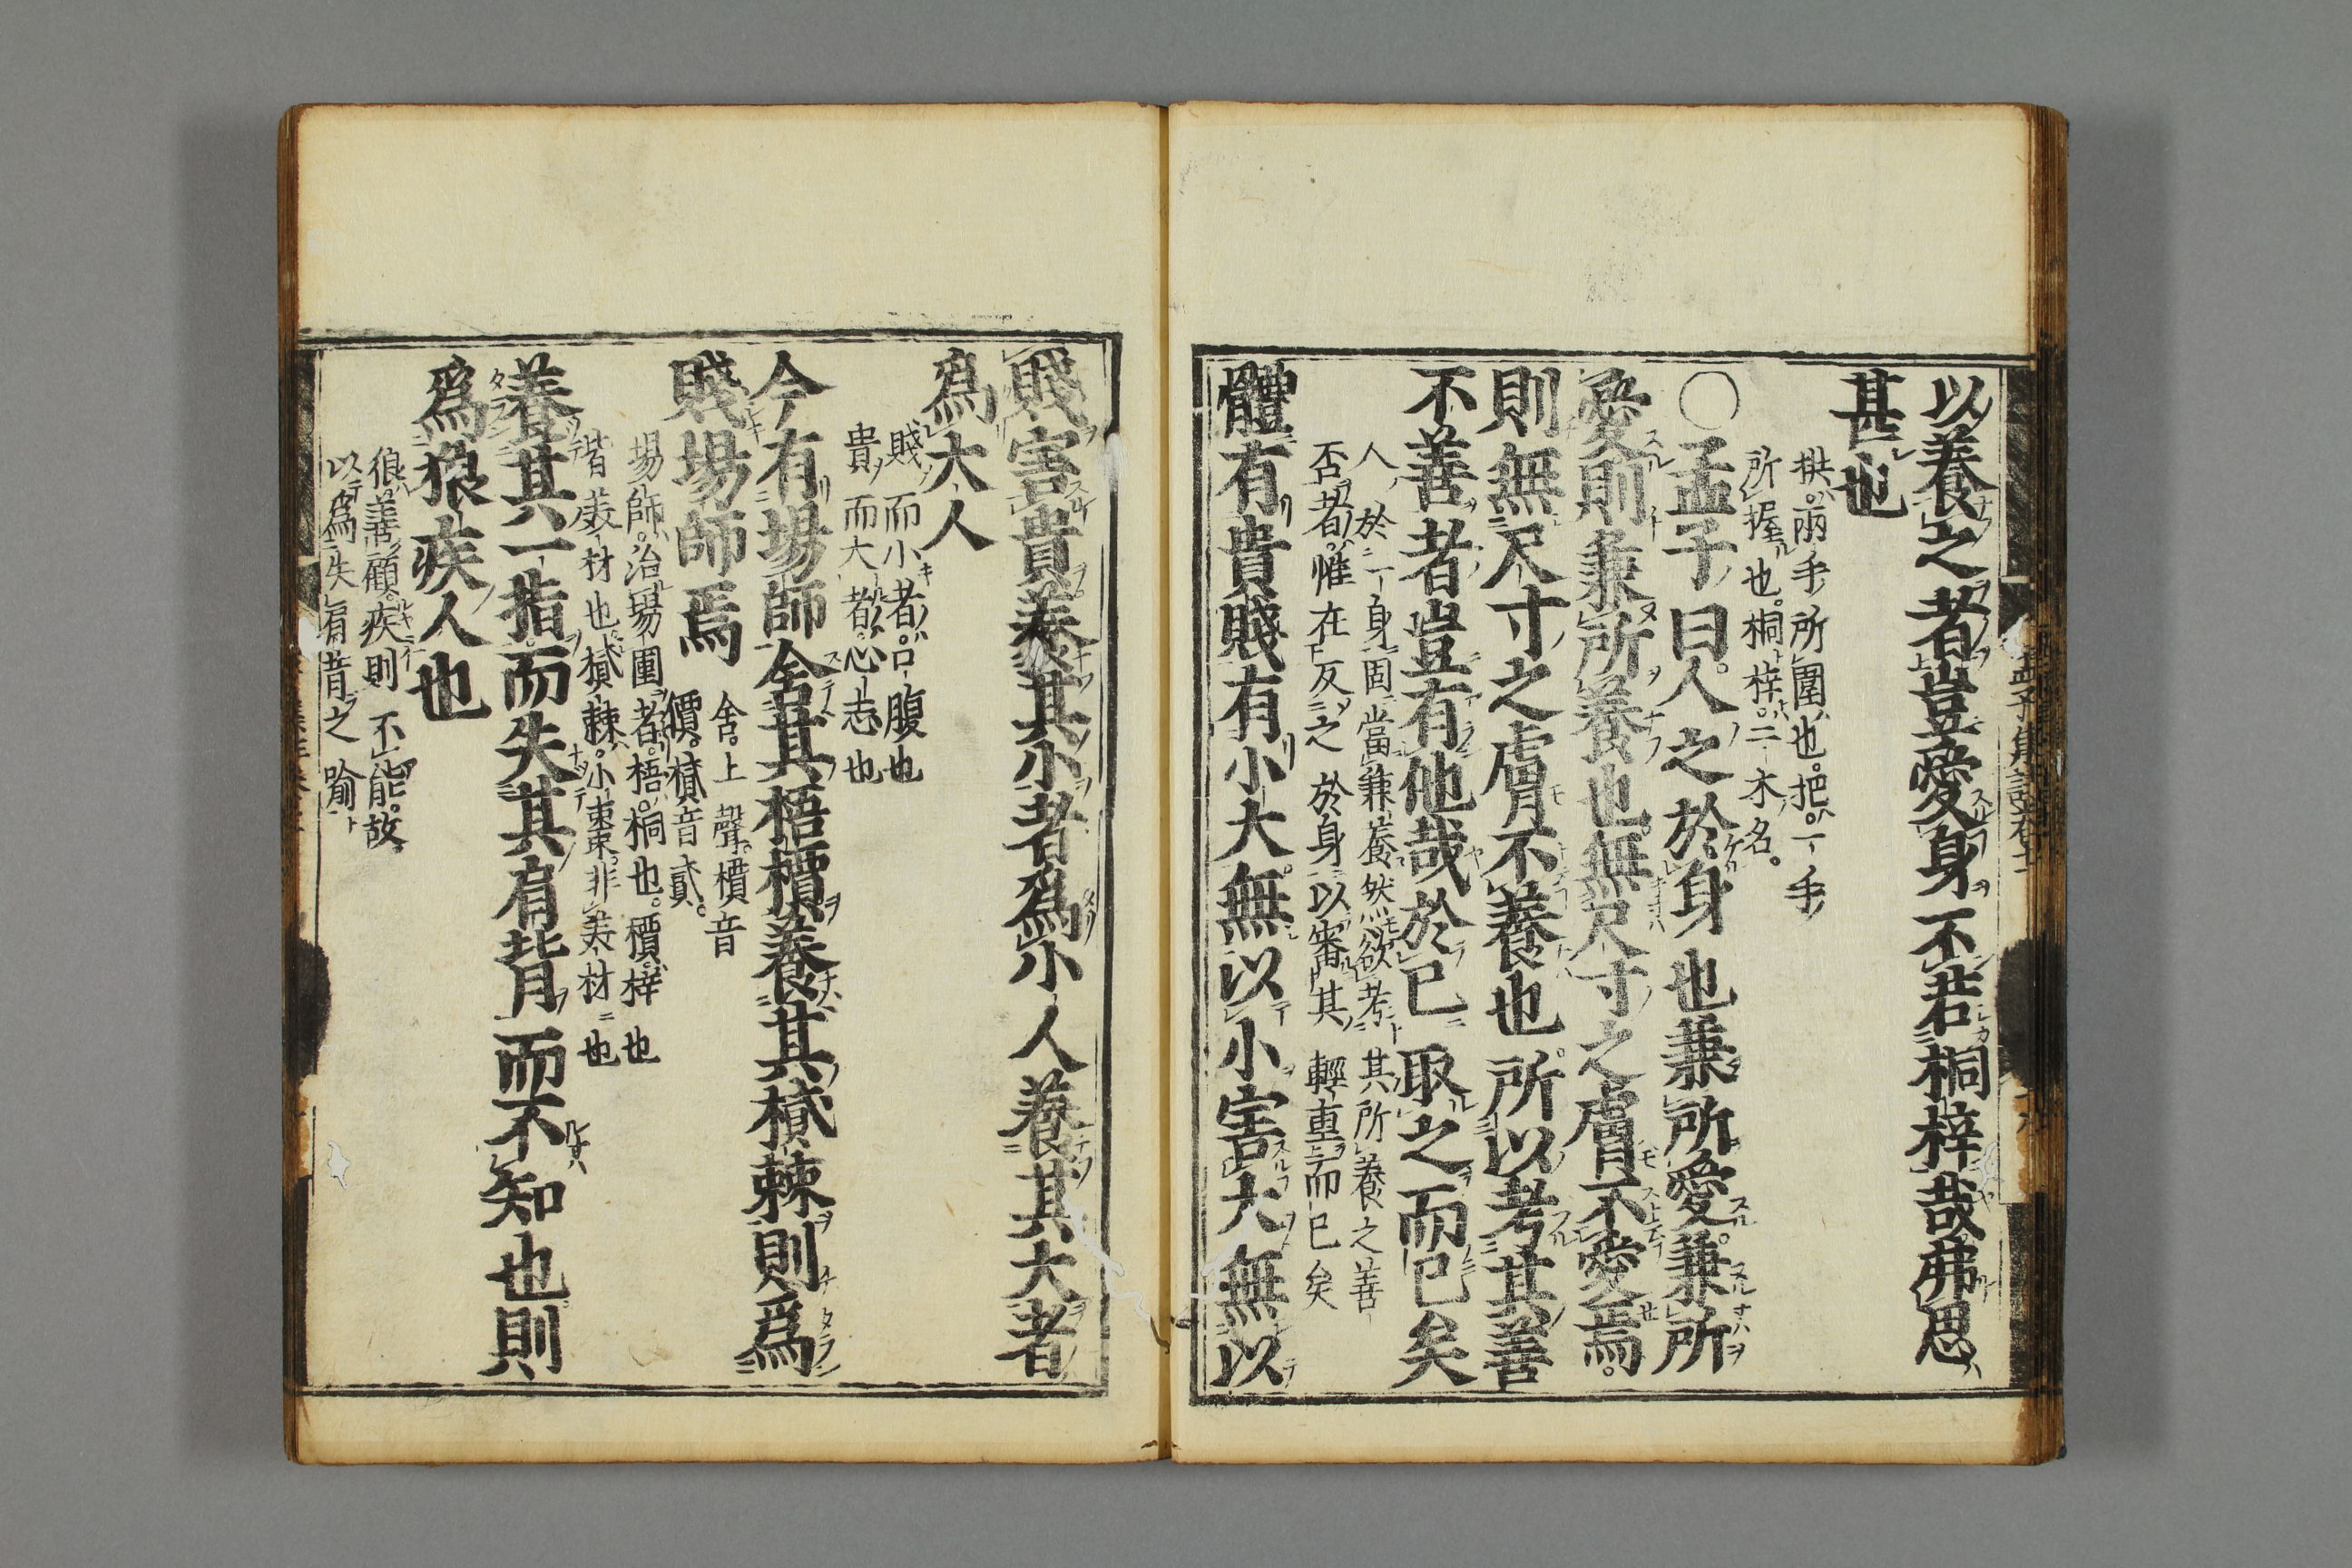 以養之者豈愛身不若桐梓哉弗思
甚也
拱兩手所圍也把一手
所握也桐梓二木名
○孟子曰人之於身也兼所愛兼所
愛則兼所養也無尺寸之膚不愛焉
則無尺寸之膚不養也所以考其善
不善者豈有他哉於已取之而已矣
人於一身固當兼養然欲考其所養之善
否者惟在反之於身以審其輕重而已矣
體有貴賤有小大無以小害大無以
賤害貴養其小者爲小人養其大者
爲大人
賤而小者口腹也
貴而大者心志也
今有場師舍其梧檟養其樲棘則爲
賤場師焉
舍上聲檟音
價樲音貳
場師治場圃者梧桐也檟梓也
皆美材也樲棘小棗非美材也
養其一指而失其肩背而不知也則
爲狼疾人也
狼善顧疾則不能故
以爲失肩背之喻